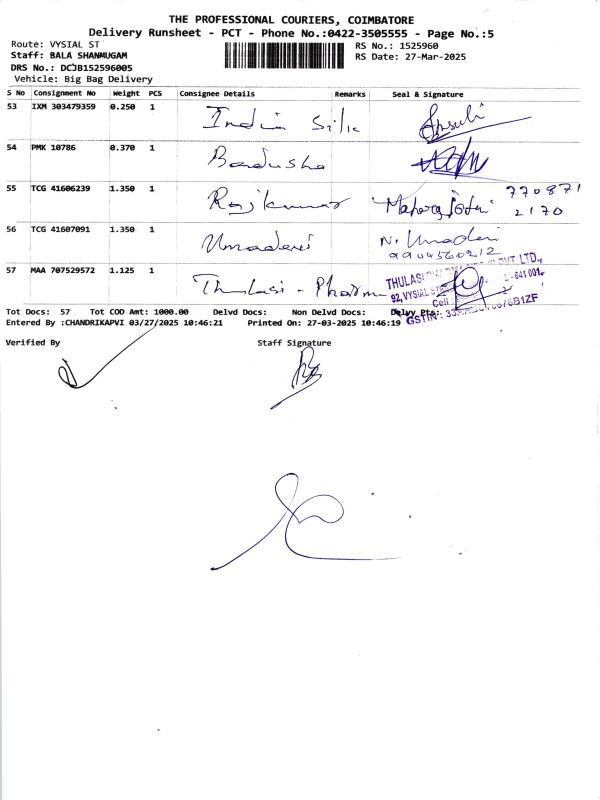 THE PROFESSIONAL COURIERS, COIMBATORE
Delivery Runsheet - PCT - Phone No.:0422-3505555 - Page No.:5
Route: VYSIAL ST RS No.: 1525960
Staff: BALA SHANMUGAM RS Date: 27-Mar-2025
DRS No.: DCJB152596005
Vehicle: Big Bag Delivery
S No Consignment No Weight PCS Consignee Details Remarks Seal & Signature
53 IXM 303479359 0.250 1 India Silk
54 PMK 10786 0.370 1 Badusha
55 TCG 41606239 1.350 1 Rajkumar 770871
2170
56 TCG 41607091 1.350 1 Umadevi N. Umadevi
9904560212
57 MAA 707529572 1.125 1 Thulasi - Pharm
THULASI PVT LTD.,
92, VYSIAL - 641 001.
Cell :
GSTIN :
Tot Docs: 57 Tot COD Amt: 1000.00 Delvd Docs: Non Delvd Docs: Delvy Pts:
Entered By :CHANDRIKAPVI 03/27/2025 10:46:21 Printed On: 27-03-2025 10:46:19
Verified By Staff Signature